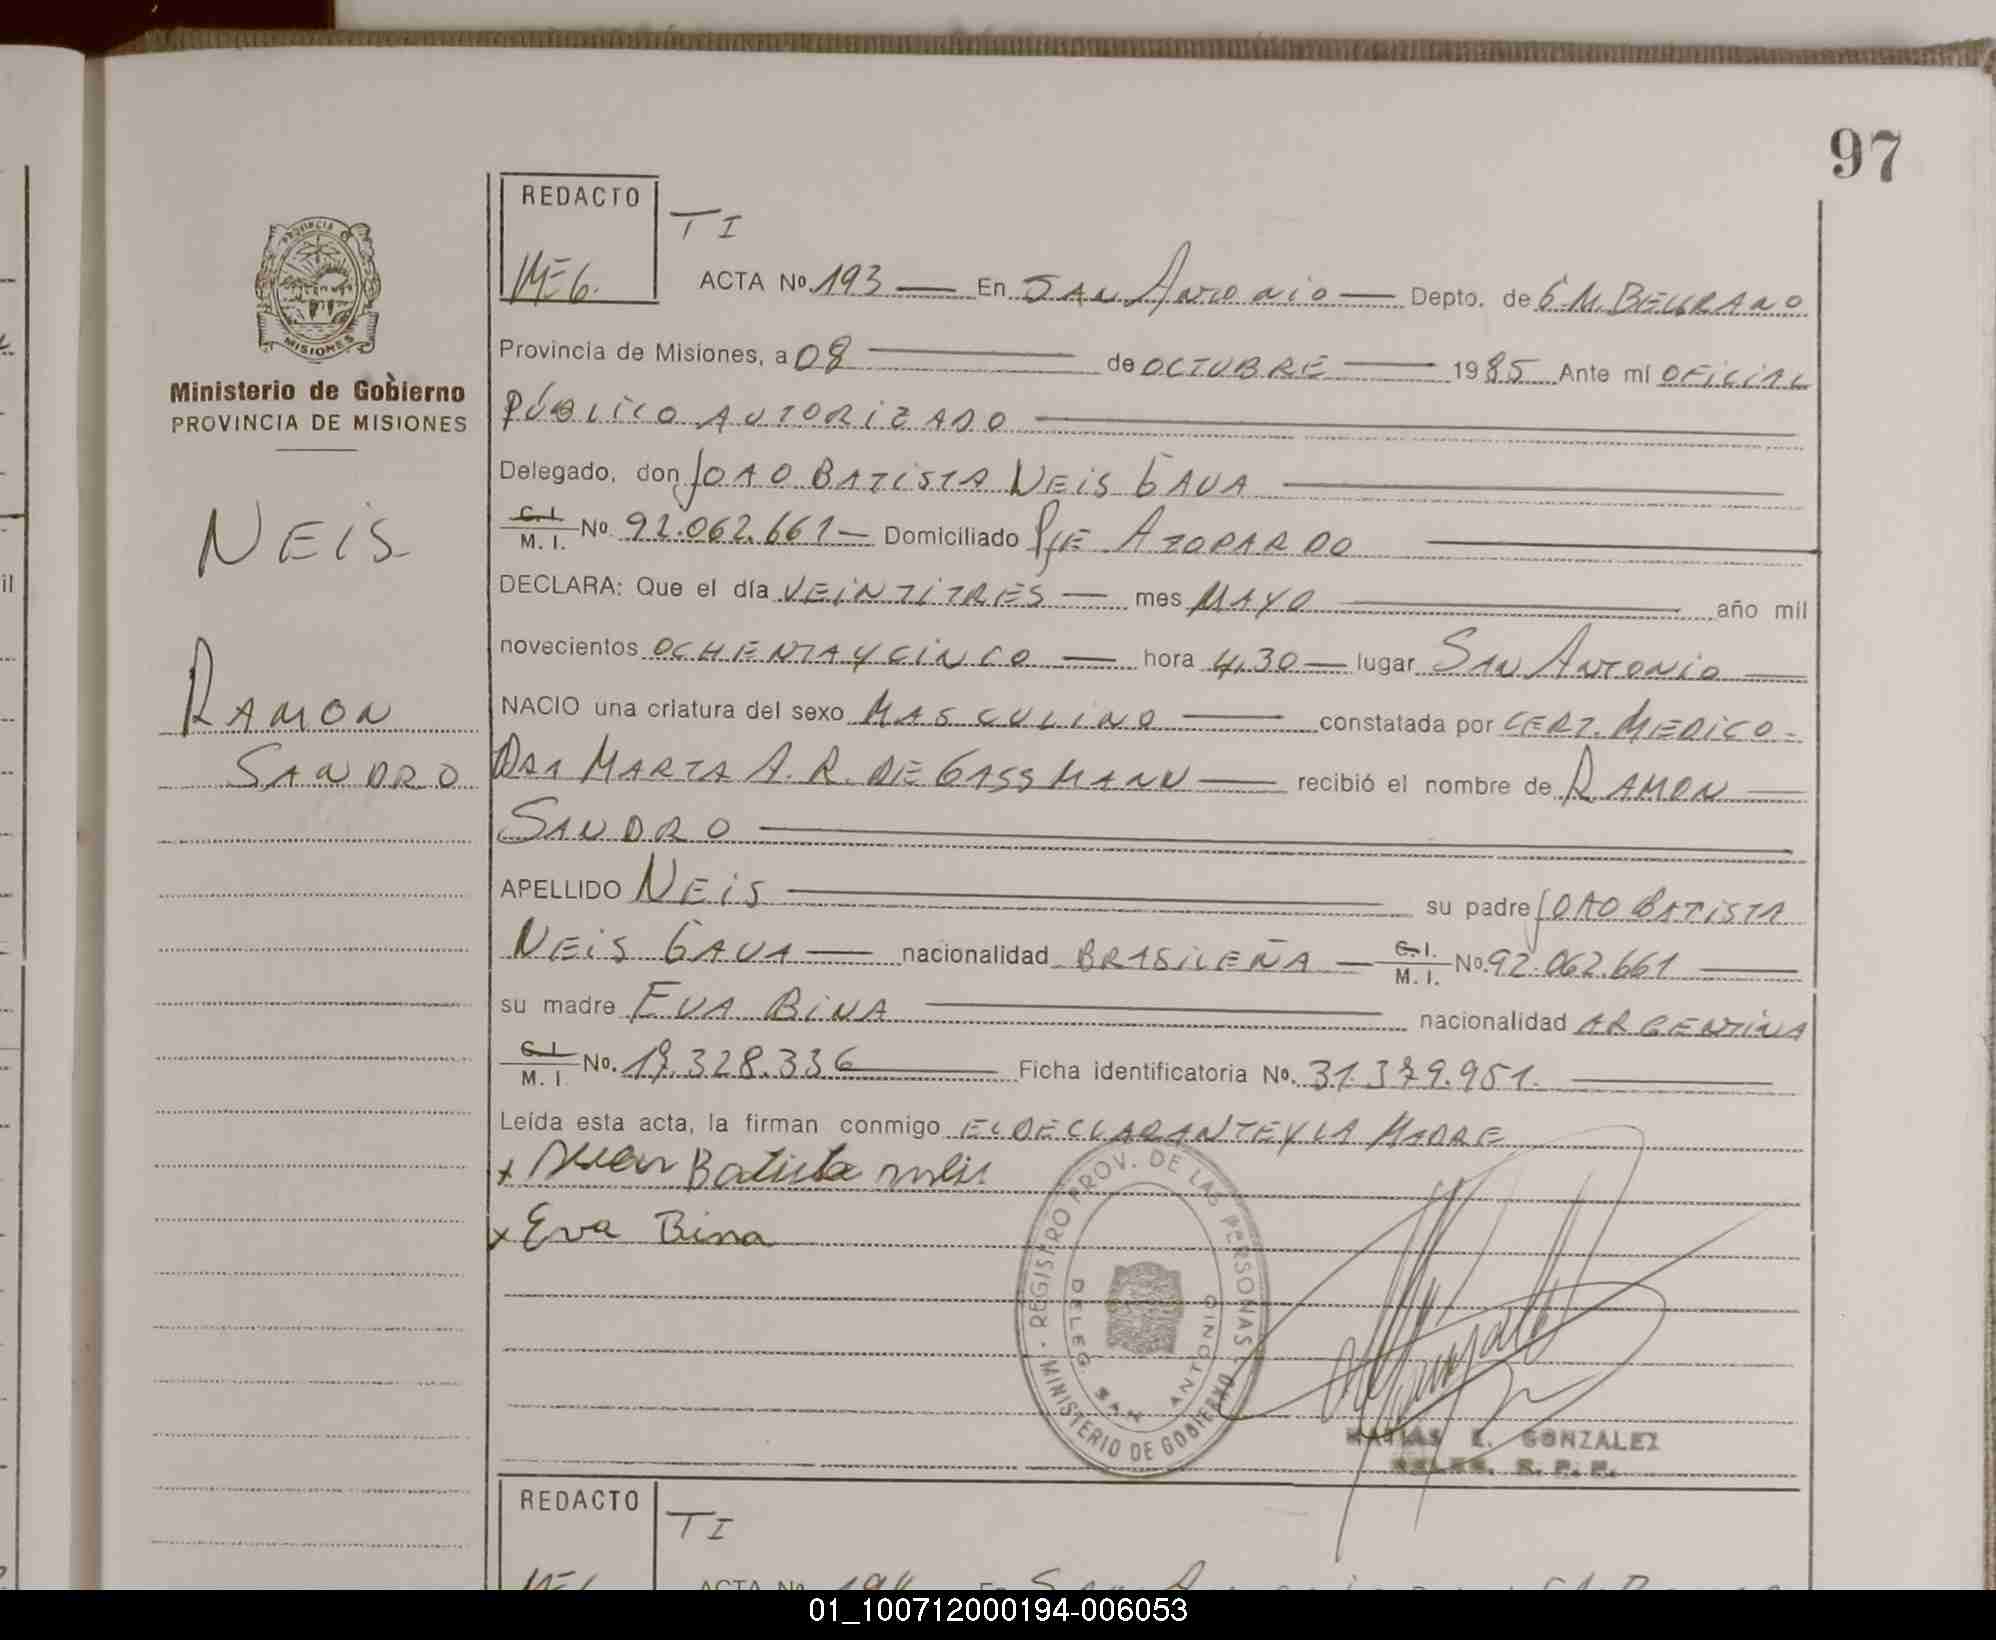 97
REDACTO
TI
MEG.
ACTA Nº 193 — En SAN ANTONIO — Depto. de G.M. BELGRANO
PROVINCIA
MISIONES
Ministerio de Gobierno
PROVINCIA DE MISIONES
NEIS
RAMON
SANDRO
Provincia de Misiones, a 08 — de OCTUBRE — 1985 Ante mí OFICIAL
PÚBLICO AUTORIZADO —
Delegado, don JOAO BATISTA NEIS GAVA —
C.I. / M.I. No. 92.062.661 — Domiciliado Pje AZOPARDO —
DECLARA: Que el día VEINTITRES — mes MAYO — año mil
novecientos OCHENTA Y CINCO — hora 4,30 — lugar SAN ANTONIO —
NACIO una criatura del sexo MASCULINO — constatada por CERT. MEDICO -
DRA MARTA A. R. DE GASSMANN — recibió el nombre de RAMON —
SANDRO —
APELLIDO NEIS — su padre JOAO BATISTA
NEIS GAVA — nacionalidad BRASILEÑA — C.I. / M.I. No. 92.062.661 —
su madre EVA BINA — nacionalidad ARGENTINA
C.I. / M.I. No. 328.336 — Ficha identificatoria No. 951. —
Leída esta acta, la firman conmigo EL DECLARANTE Y LA MADRE
x Batista neis
x Eva Bina
REGISTRO PROV. DE LAS PERSONAS
MINISTERIO DE GOBIERNO
DELEG. SAN ANTONIO
MATIAS E. GONZALEZ
DELEG. R. P. P.
REDACTO
TI
MEG
ACTA Nº 194 En SAN ANTONIO
il
01_100712000194-006053